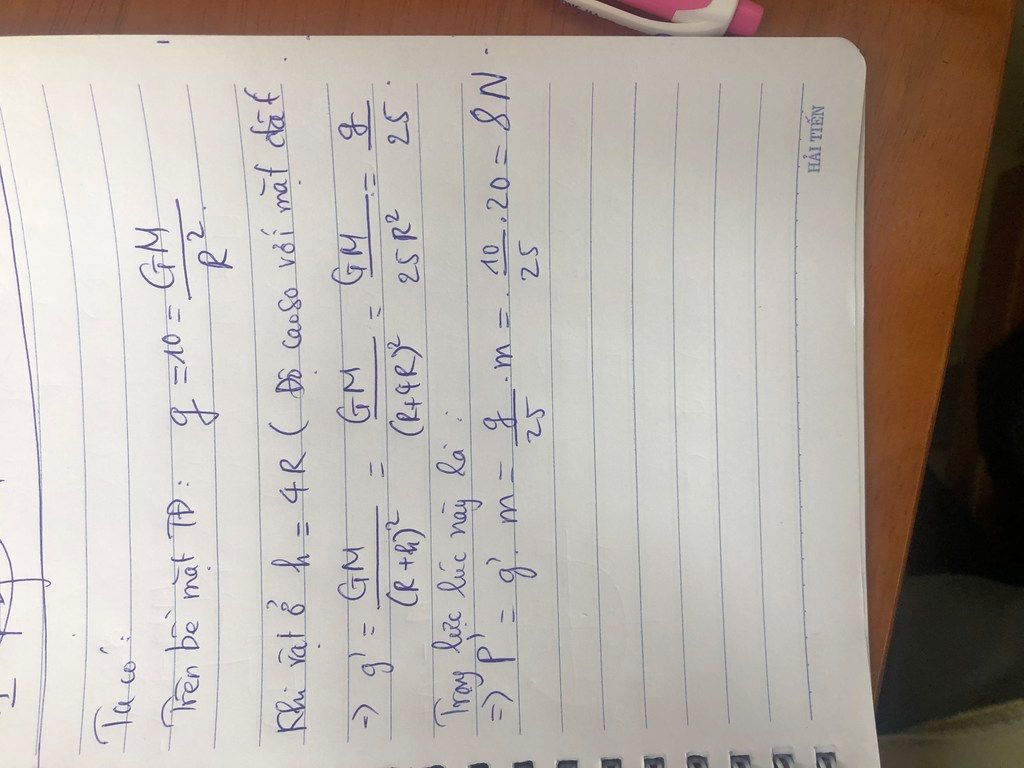 Ta có:
Trên bề mặt TĐ: g = 10 = GM / R²
Khi vật ở h = 4R (Độ cao so với mặt đất
=> g' = GM / (R+h)² = GM / (R+4R)² = GM / 25R² = g / 25.
Trọng lực lúc này là:
=> P' = g'. m = g / 25 . m = 10 / 25 . 20 = 8N.
HẢI TIẾN